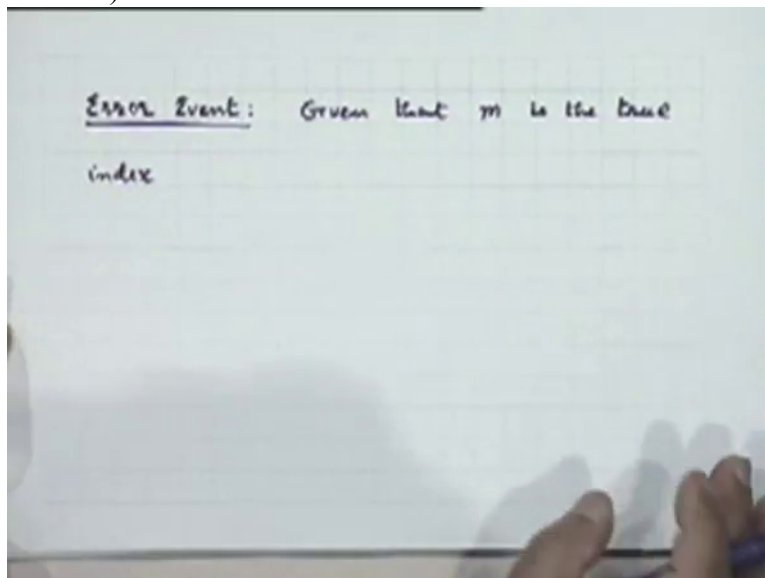 Error Event: Given that m is the true
index